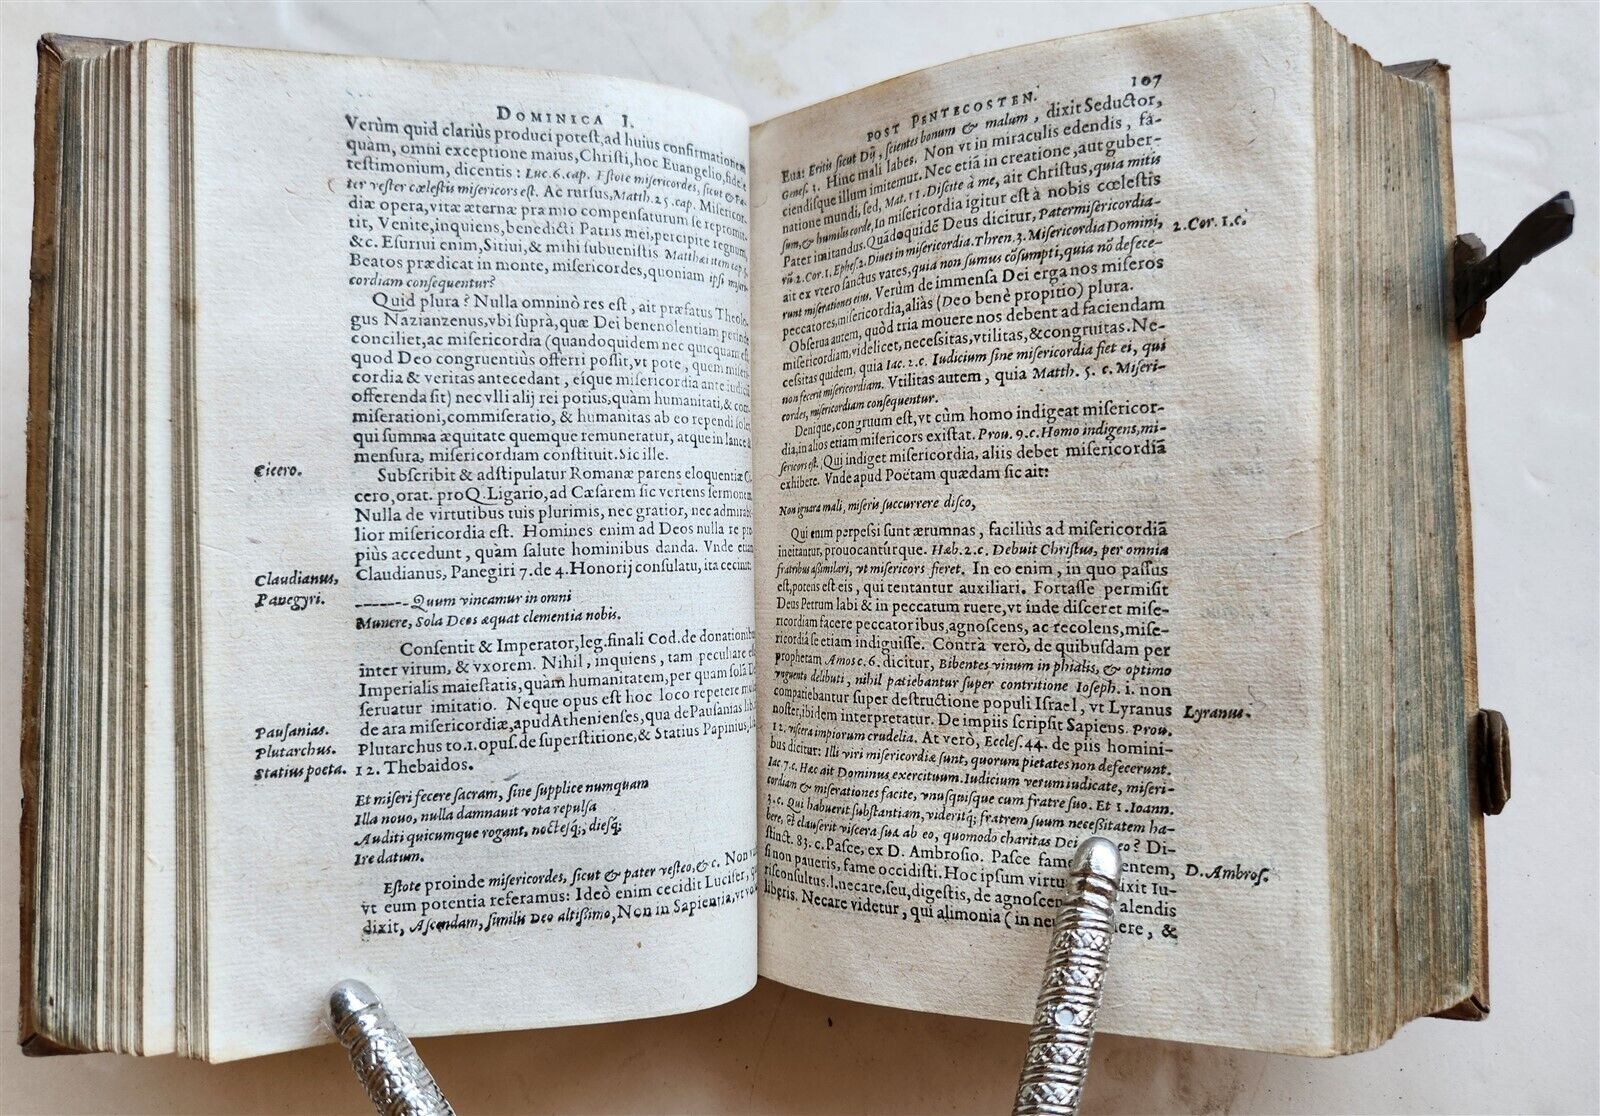 DOMINICA I.
Verùm quid clariùs produci potest, ad huius confirmationem
quàm, omni exceptione maius, Christi, hoc Euangelio, fidele
testimonium, dicentis: Luc. 6. cap. Estote misericordes, sicut & Pa-
ter vester cœlestis misericors est. Ac rursus, Matth. 25. cap. Misericor-
diæ opera, vitæ æternæ præmio compensaturum se repromit-
tit, Venite, inquiens, benedicti Patris mei, percipite regnum,
&c. Esuriui enim, Sitiui, & mihi subuenistis Matthæi item cap. 5.
Beatos prædicat in monte, misericordes, quoniam ipsi miseri-
cordiam consequentur?
Quid plura? Nulla omninò res est, ait præfatus Theolo-
gus Nazianzenus, vbi suprà, quæ Dei beneuolentiam perinde
conciliet, ac misericordia (quandoquidem nec quicquam est
quod Deo congruentiùs offerri possit, vt pote, quem miseri-
cordia & veritas antecedant, eíque misericordia ante iudiciū
offerenda sit) nec vlli alij rei potius, quàm humanitati, & com-
miserationi, commiseratio, & humanitas ab eo rependi solet,
qui summa æquitate quemque remuneratur, atque in lance &
mensura, misericordiam constituit. Sic ille.
Cicero.
Subscribit & adstipulatur Romanæ parens eloquentiæ Ci-
cero, orat. pro Q. Ligario, ad Cæsarem sic vertens sermonem
Nulla de virtutibus tuis plurimis, nec gratior, nec admirabi-
lior misericordia est. Homines enim ad Deos nulla re pro
piùs accedunt, quàm salute hominibus danda. Vnde etiam
Claudianus, Panegyri. Claudianus, Panegiri 7. de 4. Honorij consulatu, ita cecinit:
------- Quum vincamur in omni
Munere, Sola Deos æquat clementia nobis.
Consentit & Imperator, leg. finali Cod. de donationibus
inter virum, & vxorem. Nihil, inquiens, tam peculiare est
Imperialis maiestatis, quàm humanitatem, per quam solā Dei
seruatur imitatio. Neque opus est hoc loco repetere
Pausanias. de ara misericordiæ, apud Athenienses, qua de Pausanias lib.
Plutarchus. Plutarchus to. 1. opus. de superstitione, & Statius Papinius,
Statius poeta. 12. Thebaidos.
Et miseri fecere sacram, sine supplice numquam
Illa nouo, nulla damnauit vota repulsa
Auditi quicumque rogant, noctesq;, diesq;
Ire datum.
Estote proinde misericordes, sicut & pater vester, & c. Non
vt eum potentia referamus: Ideò enim cecidit Lucifer,
dixit, Ascendam, similis Deo altissimo, Non in Sapientia, vt
POST PENTECOSTEN. 107
Eua: Eritis sicut Dij, scientes bonum & malum, dixit Seductor,
Genes. 3. Hinc mali labes. Non vt in miraculis edendis, fa-
ciendisque illum imitemur. Nec etiā in creatione, aut guber-
natione mundi, sed, Mat. 11. Discite à me, ait Christus, quia mitis
sum, & humilis corde, In misericordia igitur est à nobis cœlestis
Pater imitandus. Quādoquidē Deus dicitur, Pater misericordia- 2. Cor. 1. c.
rū 2. Cor. 1. Ephes. 2. Diues in misericordia. Thren. 3. Misericordia Domini,
ait ex vtero sanctus vates, quia non sumus cōsumpti, quia nō defece-
runt miserationes eius. Verùm de immensa Dei erga nos miseros
peccatores, misericordia, aliàs (Deo benè propitio) plura.
Obserua autem, quòd tria mouere nos debent ad faciendam
misericordiam, videlicet, necessitas, vtilitas, & congruitas. Ne-
cessitas quidem, quia Iac. 2. c. Iudicium sine misericordia fiet ei, qui
non fecerit misericordiam. Vtilitas autem, quia Matth. 5. c. Miseri-
cordes, misericordiam consequentur.
Denique, congruum est, vt cùm homo indigeat misericor-
dia, in alios etiam misericors existat. Prou. 9. c. Homo indigens, mi-
sericors est. Qui indiget misericordia, aliis debet misericordiā
exhibere. Vnde apud Poëtam quædam sic ait:
Non ignara mali, miseris succurrere disco,
Qui enim perpessi sunt ærumnas, faciliùs ad misericordiā
incitantur, prouocantúrque. Hæb. 2. c. Debuit Christus, per omnia
fratribus assimilari, vt misericors fieret. In eo enim, in quo passus
est, potens est eis, qui tentantur auxiliari. Fortasse permisit
Deus Petrum labi & in peccatum ruere, vt inde disceret mise-
ricordiam facere peccatoribus, agnoscens, ac recolens, mise-
ricordiā se etiam indiguisse. Contrà verò, de quibusdam per
prophetam Amos c. 6. dicitur, Bibentes vinum in phialis, & optimo
vnguento delibuti, nihil patiebantur super contritione Ioseph. i. non
compatiebantur super destructione populi Israel, vt Lyranus Lyranus.
noster, ibidem interpretatur. De impiis scripsit Sapiens. Prou.
12. viscera impiorum crudelia. At verò, Eccles. 44. de piis homini-
bus dicitur: Illi viri misericordiæ sunt, quorum pietates non defecerunt.
Iac. 7. c. Hæc ait Dominus exercituum. Iudicium verum iudicate, miseri-
cordiam & miserationes facite, vnusquisque cum fratre suo. Et 1. Ioann.
3. c. Qui habuerit substantiam, videritq; fratrem suum necessitatem ha-
bere, & clauserit viscera sua ab eo, quomodo charitas Dei eo? Di-
stinct. 83. c. Pasce, ex D. Ambrosio. Pasce fame entem, D. Ambros.
si non paueris, fame occidisti. Hoc ipsum virtu dixit Iu-
risconsultus. l. necare, seu, digestis, de agnoscen alendis
liberis. Necare videtur, qui alimonia (in ne ere, &